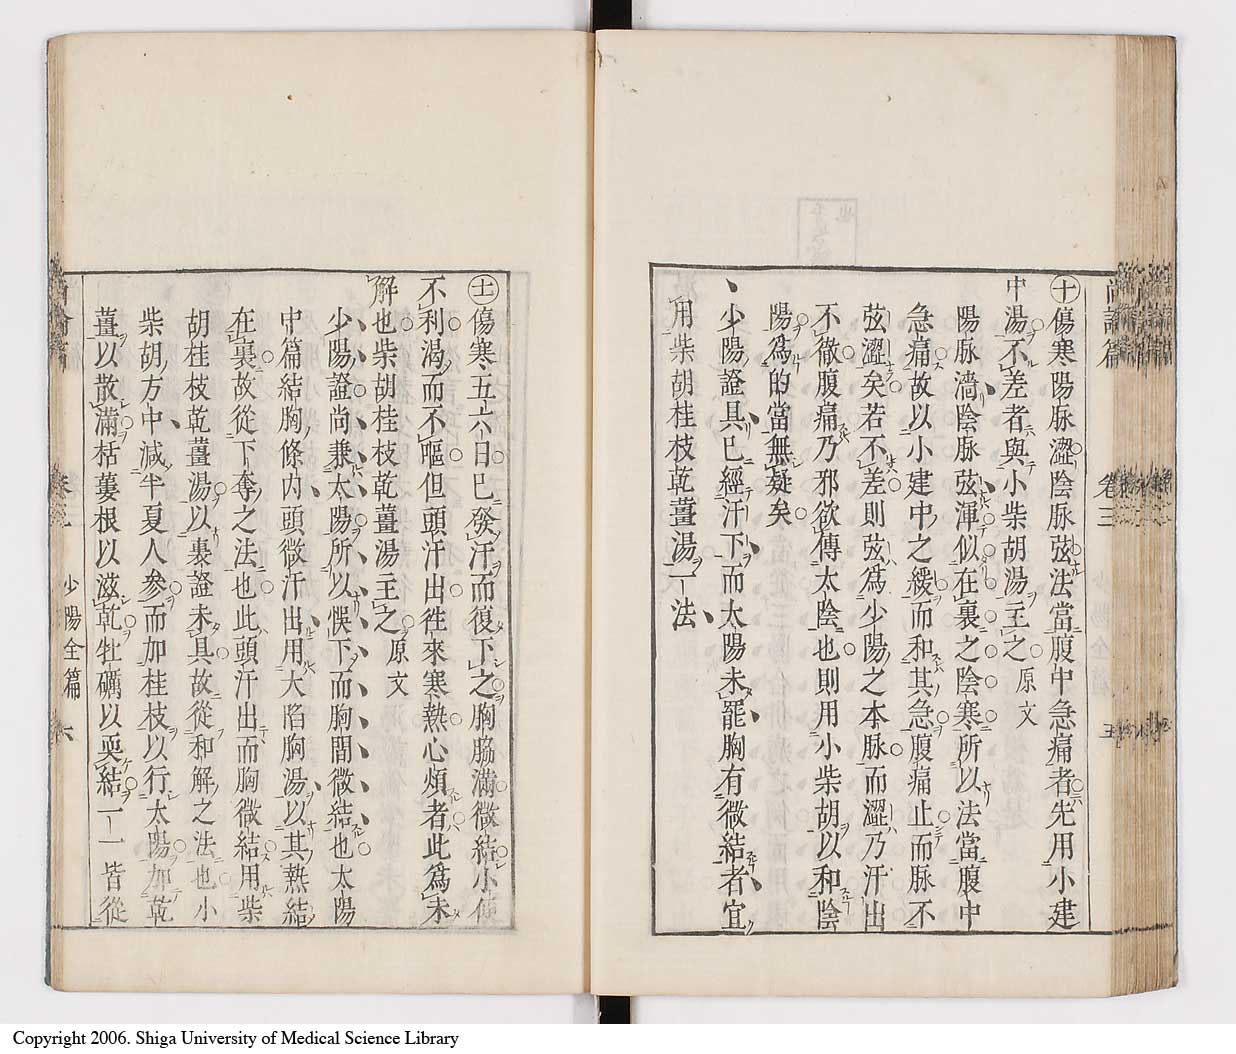 尚論篇 卷三 五
㊉傷寒陽脉澀陰脉弦法當腹中急痛者先用小建
中湯不差者與小柴胡湯主之 原文
陽脉濇陰脉弦渾似在裏之陰寒所以法當腹中
急痛故以小建中之緩而和其急腹痛止而脉不
弦澀矣若不差則弦爲少陽之本脉而澀乃汗出
不徹腹痛乃邪欲傳太陰也則用小柴胡以和陰
陽爲的當無疑矣
少陽證具已經汗下而太陽未罷胸有微結者宜
用柴胡桂枝乾薑湯一法
十一傷寒五六日已發汗而復下之胸脇滿微結小便
不利渴而不嘔但頭汗出徃來寒熱心煩者此爲未
解也柴胡桂枝乾薑湯主之 原文
少陽證尚兼太陽所以悞下而胸間微結也太陽
中篇結胸條内頭微汗出用大陷胸湯以其熱結
在裏故從下奪之法也此頭汗出而胸微結用柴
胡桂枝乾薑湯以裏證未具故從和解之法也小
柴胡方中減半夏人參而加桂枝以行太陽加乾
薑以散滿栝蔞根以滋乾牡礪以耎結一一皆從
少陽全篇 六
Copyright 2006. Shiga University of Medical Science Library